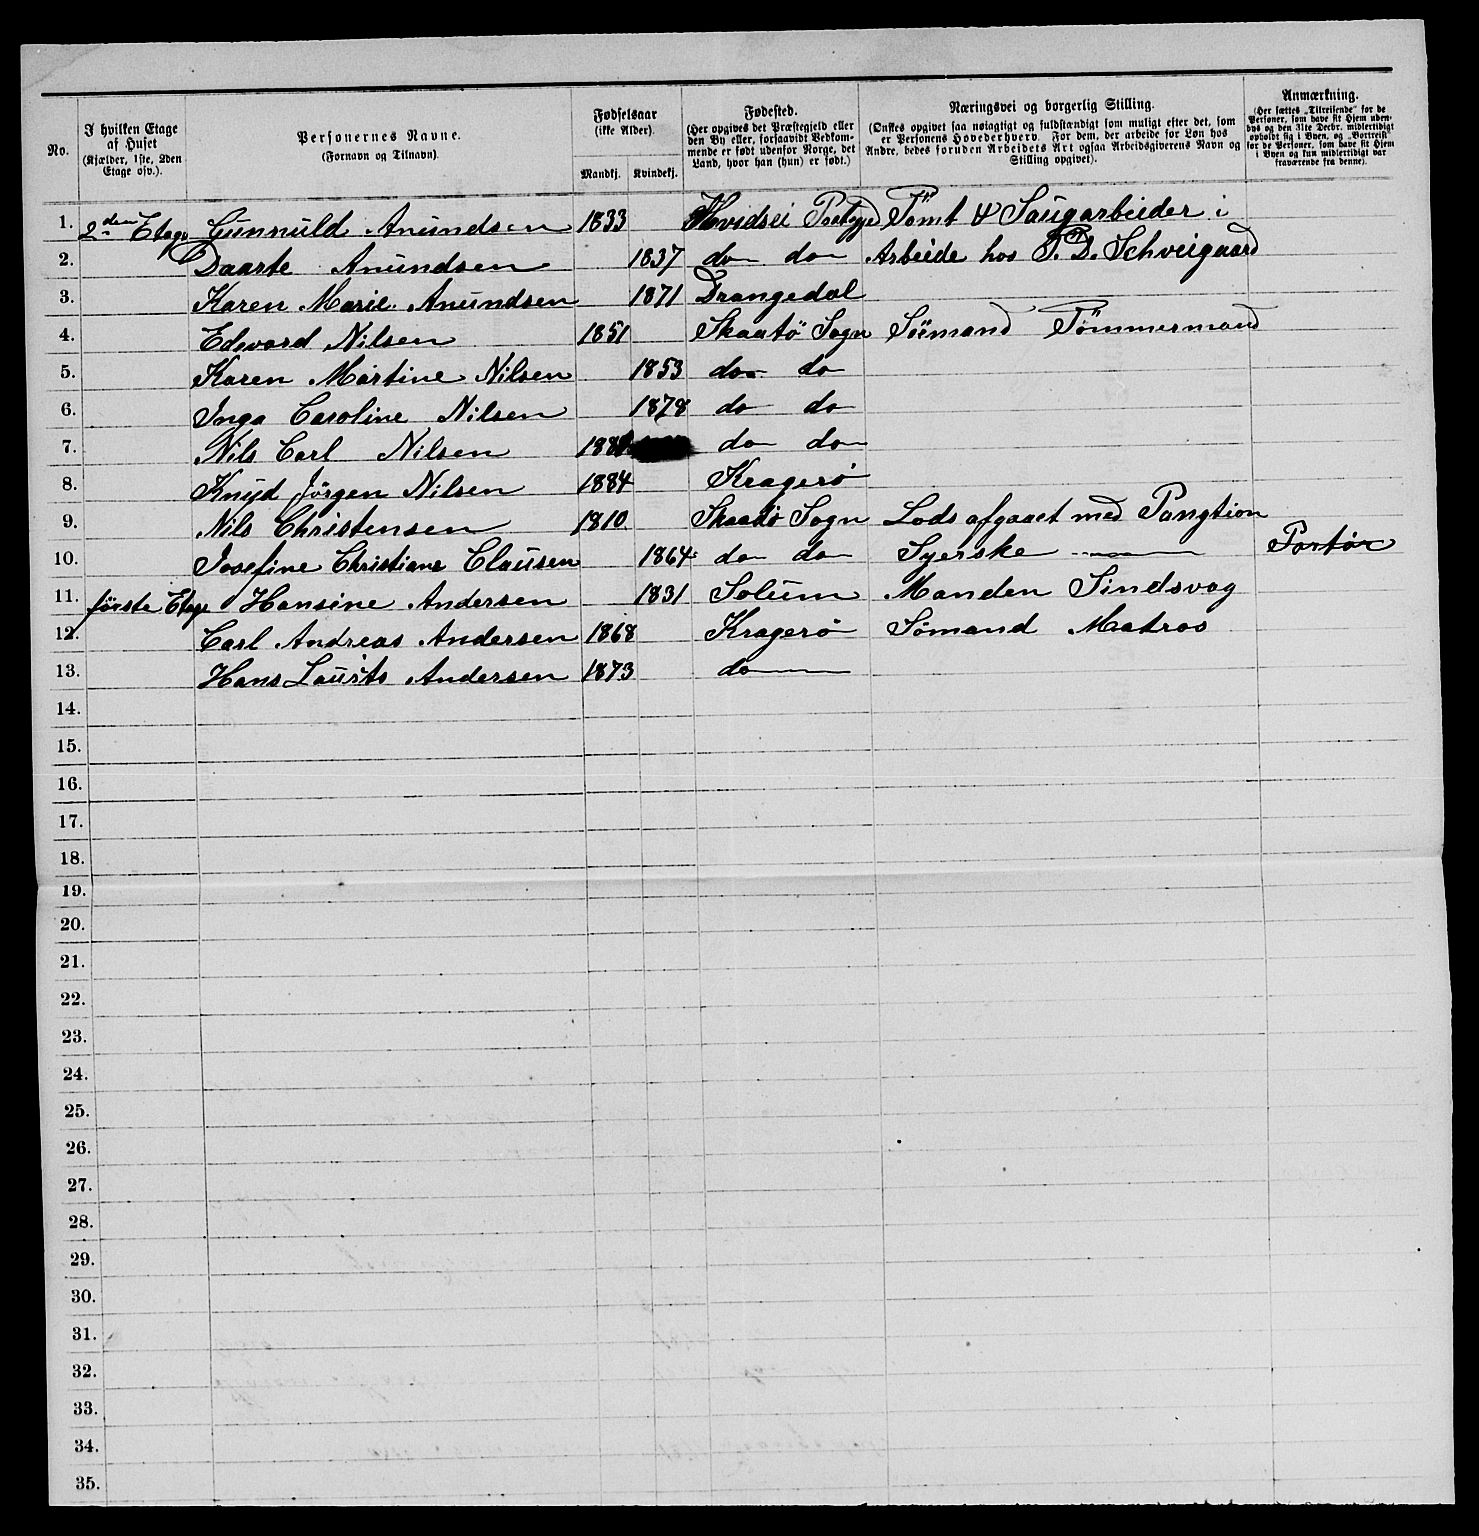 No.
I hvilken Etage af Huset (Kjælder, 1ste, 2den Etage osv.).
Personernes Navne. (Fornavn og Tilnavn).
Fødselsaar (ikke Alder).
Mandkj. Kvindekj.
Fødested. (Her opgives det Præstegjeld eller den By eller, forsaavidt Vedkommende er født udenfor Norge, det Land, hvor han (hun) er født.)
Næringsvei og borgerlig Stilling. (Ønskes opgivet saa nøiagtigt og fuldstændigt som muligt efter det, som er Personens Hovederhverv. For dem, der arbeide for Løn hos Andre, bedes foruden Arbeidets Art ogsaa Arbeidsgiverens Navn og Stilling opgivet).
Anmærkning. (Her sættes „Tilreisende" for de Personer, som have sit Hjem udenbys og den 31te Decbr. midlertidigt opholdt sig i Byen, og „Bortreist" for de Personer, som have sit Hjem i Byen og kun midlertidigt var fraværende fra denne).
1. 2den Etage Gunnuld Anundsen 1833 Hvidsei Tomt & Saugarbeider i
2. Daarte Anundsen 1837 do do Arbeide hos T. D. Schveigaard
3. Karen Marie Anundsen 1871 Drangedal
4. Edvard Nilsen 1851 Skaatö Sogn Sömand Tömmermand
5. Karen Martine Nilsen 1853 do do
6. Inga Caroline Nilsen 1878 do do
7. Nils Carl Nilsen do do
8. Knud Jörgen Nilsen 1884 Kragerö
9. Nils Christensen 1810 Skaatö Sogn Lods afgaaet med Pangtion
10. Josefine Christiane Clausen 1864 do do Syerske Portör
11. förste Etage Hansine Andersen 1831 Solum Manden Sindsvag
12. Carl Andreas Andersen 1868 Kragerö Sömand Matros
13. Hans Laurits Andersen 1873 do
14.
15.
16.
17.
18.
19.
20.
21.
22.
23.
24.
25.
26.
27.
28.
29.
30.
31.
32.
33.
34.
35.